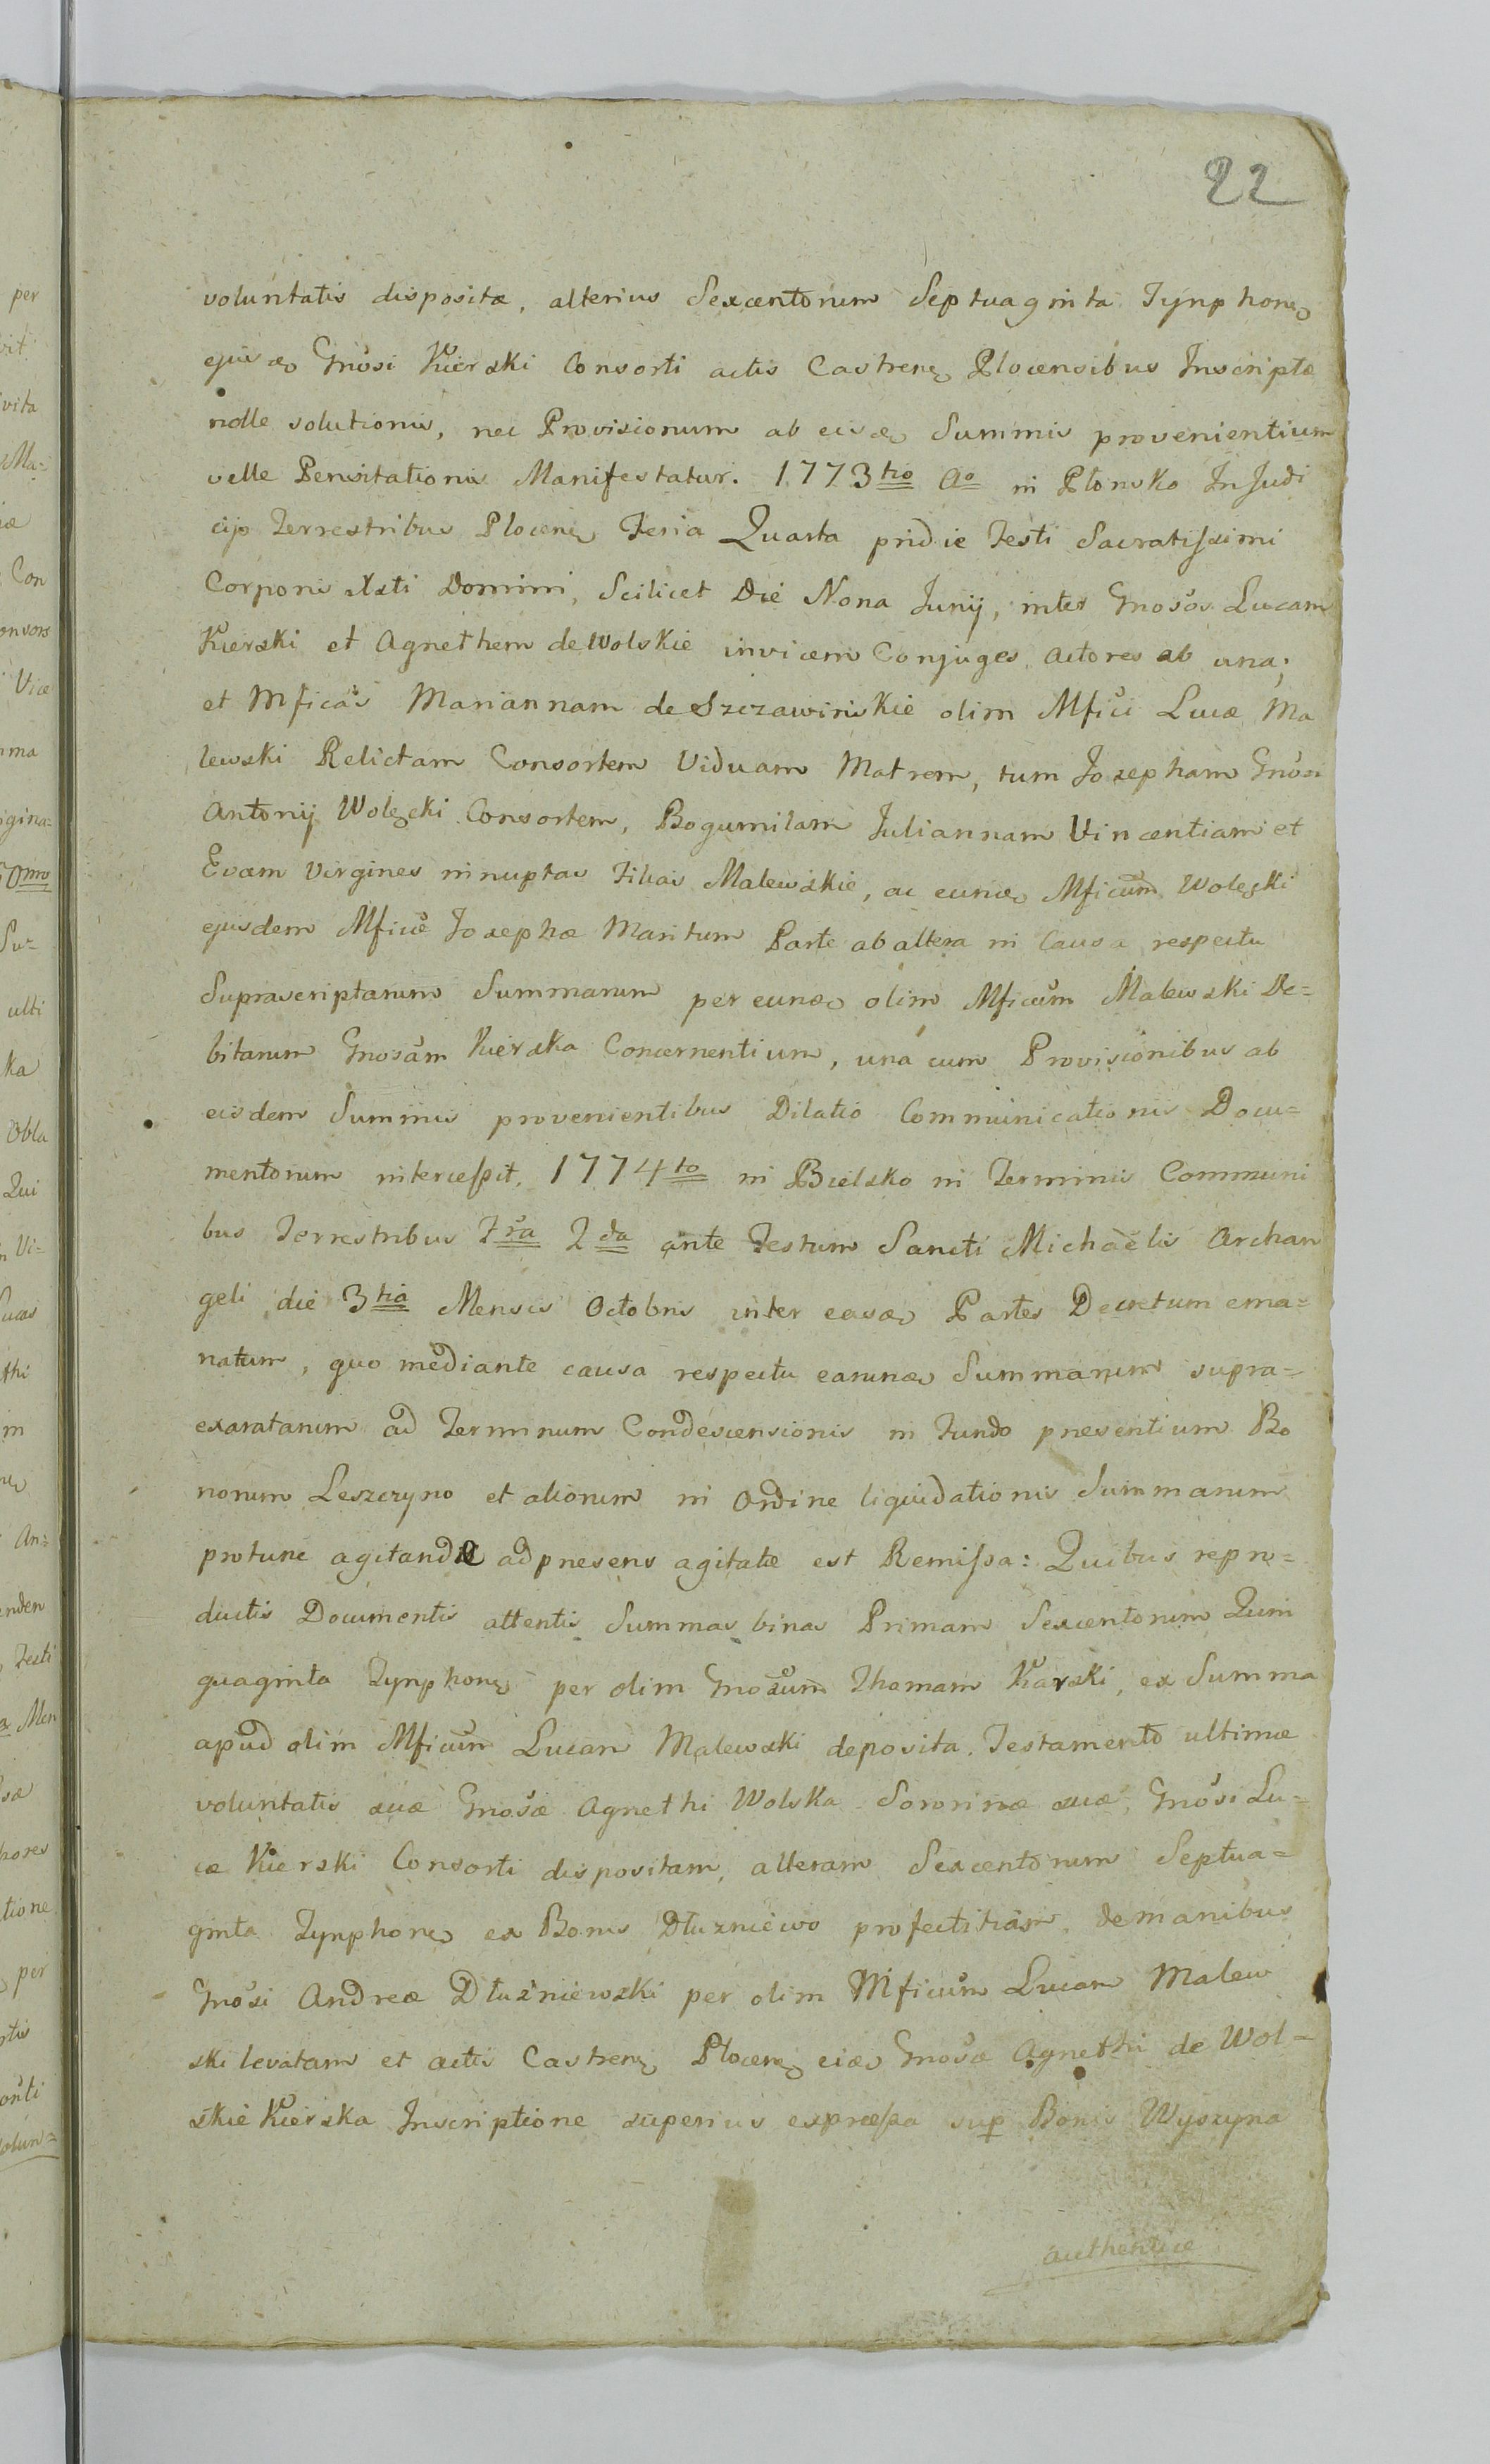 22
voluntatis disposita, alterius Sexcentorum Septuaginta Tynphone
ejusde Gnosi Kierski Consorti actis Castrens Plocensibus Inscriptæ
nolle solutionis, nec Provisionum ab eisde Summis provenientium
velle Pensitationis Manifestatur. 1773tio Ao in Płonsko In Judi
cijs Terrestribus Plocens Feria Quarta pridie Festi Sacratissimi
Corporis Xsti Domini, Scilicet Die Nona Junij, inter Gnosos Lucam
Kierski et Agnethem de Wolskie invicem Conjuges Actores ab una,
et Mficas Mariannam de Szczawinskie olim Mfici Lucæ Ma
lewski Relictam Consortem Viduam Matrem, tum Josepham Gnosi
Antonij Wolęcki Consortem, Bogumilam Juliannam Vincentiam et
Evam Virgines innuptas Filias Malewskie, ac eunde Mficum Wolęcki
ejusdem Mficæ Josephæ Maritum Parte ab altera in Causa respectu
Suprascriptarum Summarum per eunde olim Mficum Malewski De=
bitarum Gnosam Kierska Concernentium, una cum Provisionibus ab
eisdem Summis provenientibus Dilatio Communicationis Docu=
mentorum intercessit, 1774to in Bielsko in Terminis Communi
bus Terrestribus Fria 2da ante Festum Sancti Michaëlis Archan
geli die 3tia Mensis Octobris inter easde Partes Decretum ema=
natum, quo mediante causa respectu earunde Summarum supra=
exaratarum ad Terminum Condescensionis in Fundo præsentium Bo
norum Leszczyno et aliorum in Ordine liquidationis Summarum
protunc agitandæ ad præsens agitatæ est Remissa: Quibus repro=
ductis Documentis attentis Summas binas Primam Sexcentorum Quin
quaginta Tynphone per olim Gnosum Thomam Karski, ex Summa
apud olim Mficum Lucam Malewski deposita. Testamento ultimæ
voluntatis suæ Gnosæ Agnethi Wolska Sororinæ suæ, Gnosi Lu=
cæ Kierski Consorti dispositam, alteram Sexcentorum Septua=
ginta Tynphone ex Bonis Dłuzniewo profectitiam, de manibus
Gnosi Andreæ Dłużniewski per olim Mficum Lucam Malew
ski levatam et actis Castrens Plocens eide Gnosæ Agnethi de Wol=
skie Kierska Inscriptione superius expressa sup Bonis Wyszyna
authentice